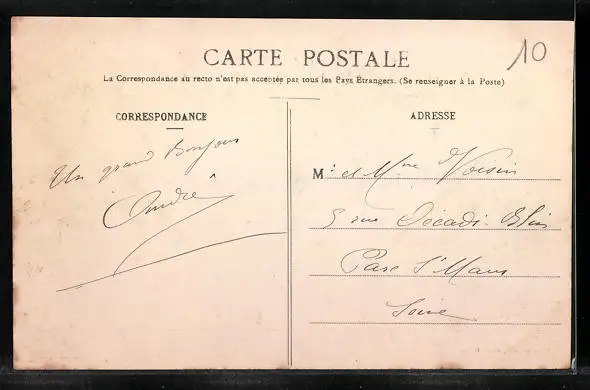 CARTE POSTALE
10
La Correspondance au recto n'est pas acceptée par tous les Pays Etrangers. (Se renseigner à la Poste)
CORRESPONDANCE
Un grand Bonjour
André
ADRESSE
M. et Mme Voisin
5 rue
Parc St Maur
Seine